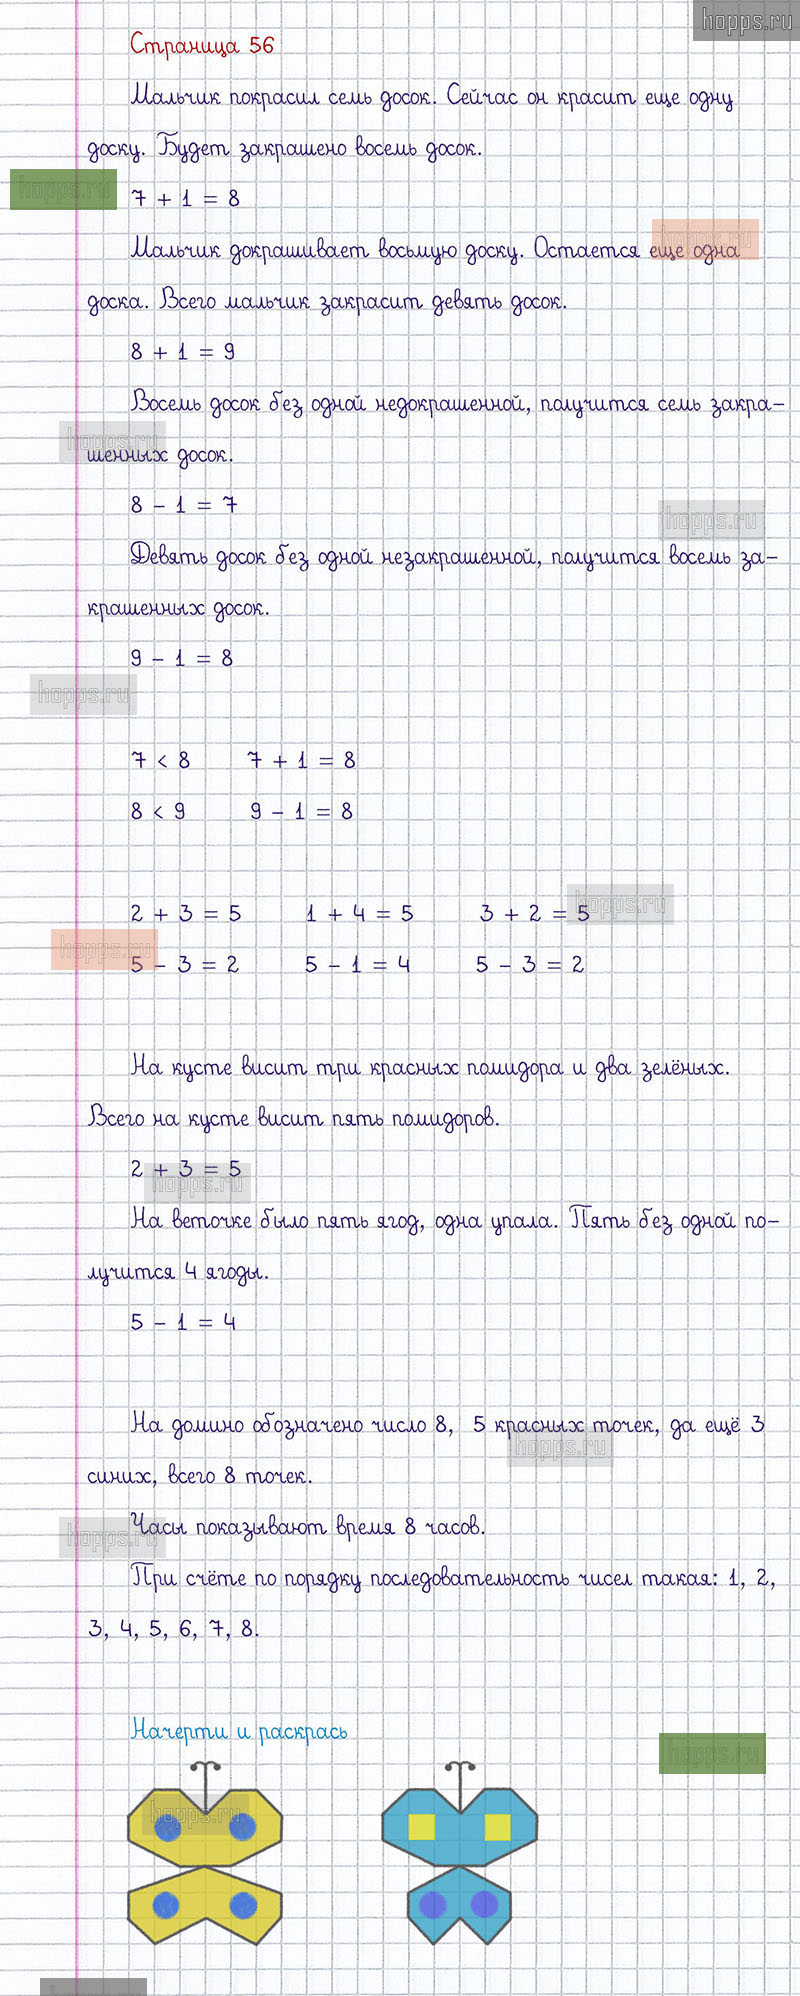 hopps.ru
Страница 56
Мальчик покрасил семь досок. Сейчас он красит еще одну
доску. Будет закрашено восемь досок.
hopps.ru
7 + 1 = 8
hopps.ru
Мальчик докрашивает восьмую доску. Остается еще одна
доска. Всего мальчик закрасит девять досок.
8 + 1 = 9
Восемь досок без одной недокрашенной, получится семь закра-
hopps.ru
шенных досок.
8 - 1 = 7
hopps.ru
Девять досок без одной незакрашенной, получится восемь за-
крашенных досок.
9 - 1 = 8
hopps.ru
7 < 8 7 + 1 = 8
8 < 9 9 - 1 = 8
hopps.ru
2 + 3 = 5 1 + 4 = 5 3 + 2 = 5
hopps.ru
5 - 3 = 2 5 - 1 = 4 5 - 3 = 2
На кусте висит три красных помидора и два зелёных.
Всего на кусте висит пять помидоров.
2 + 3 = 5
hopps.ru
На веточке было пять ягод, одна упала. Пять без одной по-
лучится 4 ягоды.
5 - 1 = 4
На домино обозначено число 8, 5 красных точек, да ещё 3
hopps.ru
синих, всего 8 точек.
Часы показывают время 8 часов.
hopps.ru
При счёте по порядку последовательность чисел такая: 1, 2,
3, 4, 5, 6, 7, 8.
Начерти и раскрась
hopps.ru
hopps.ru
hopps.ru